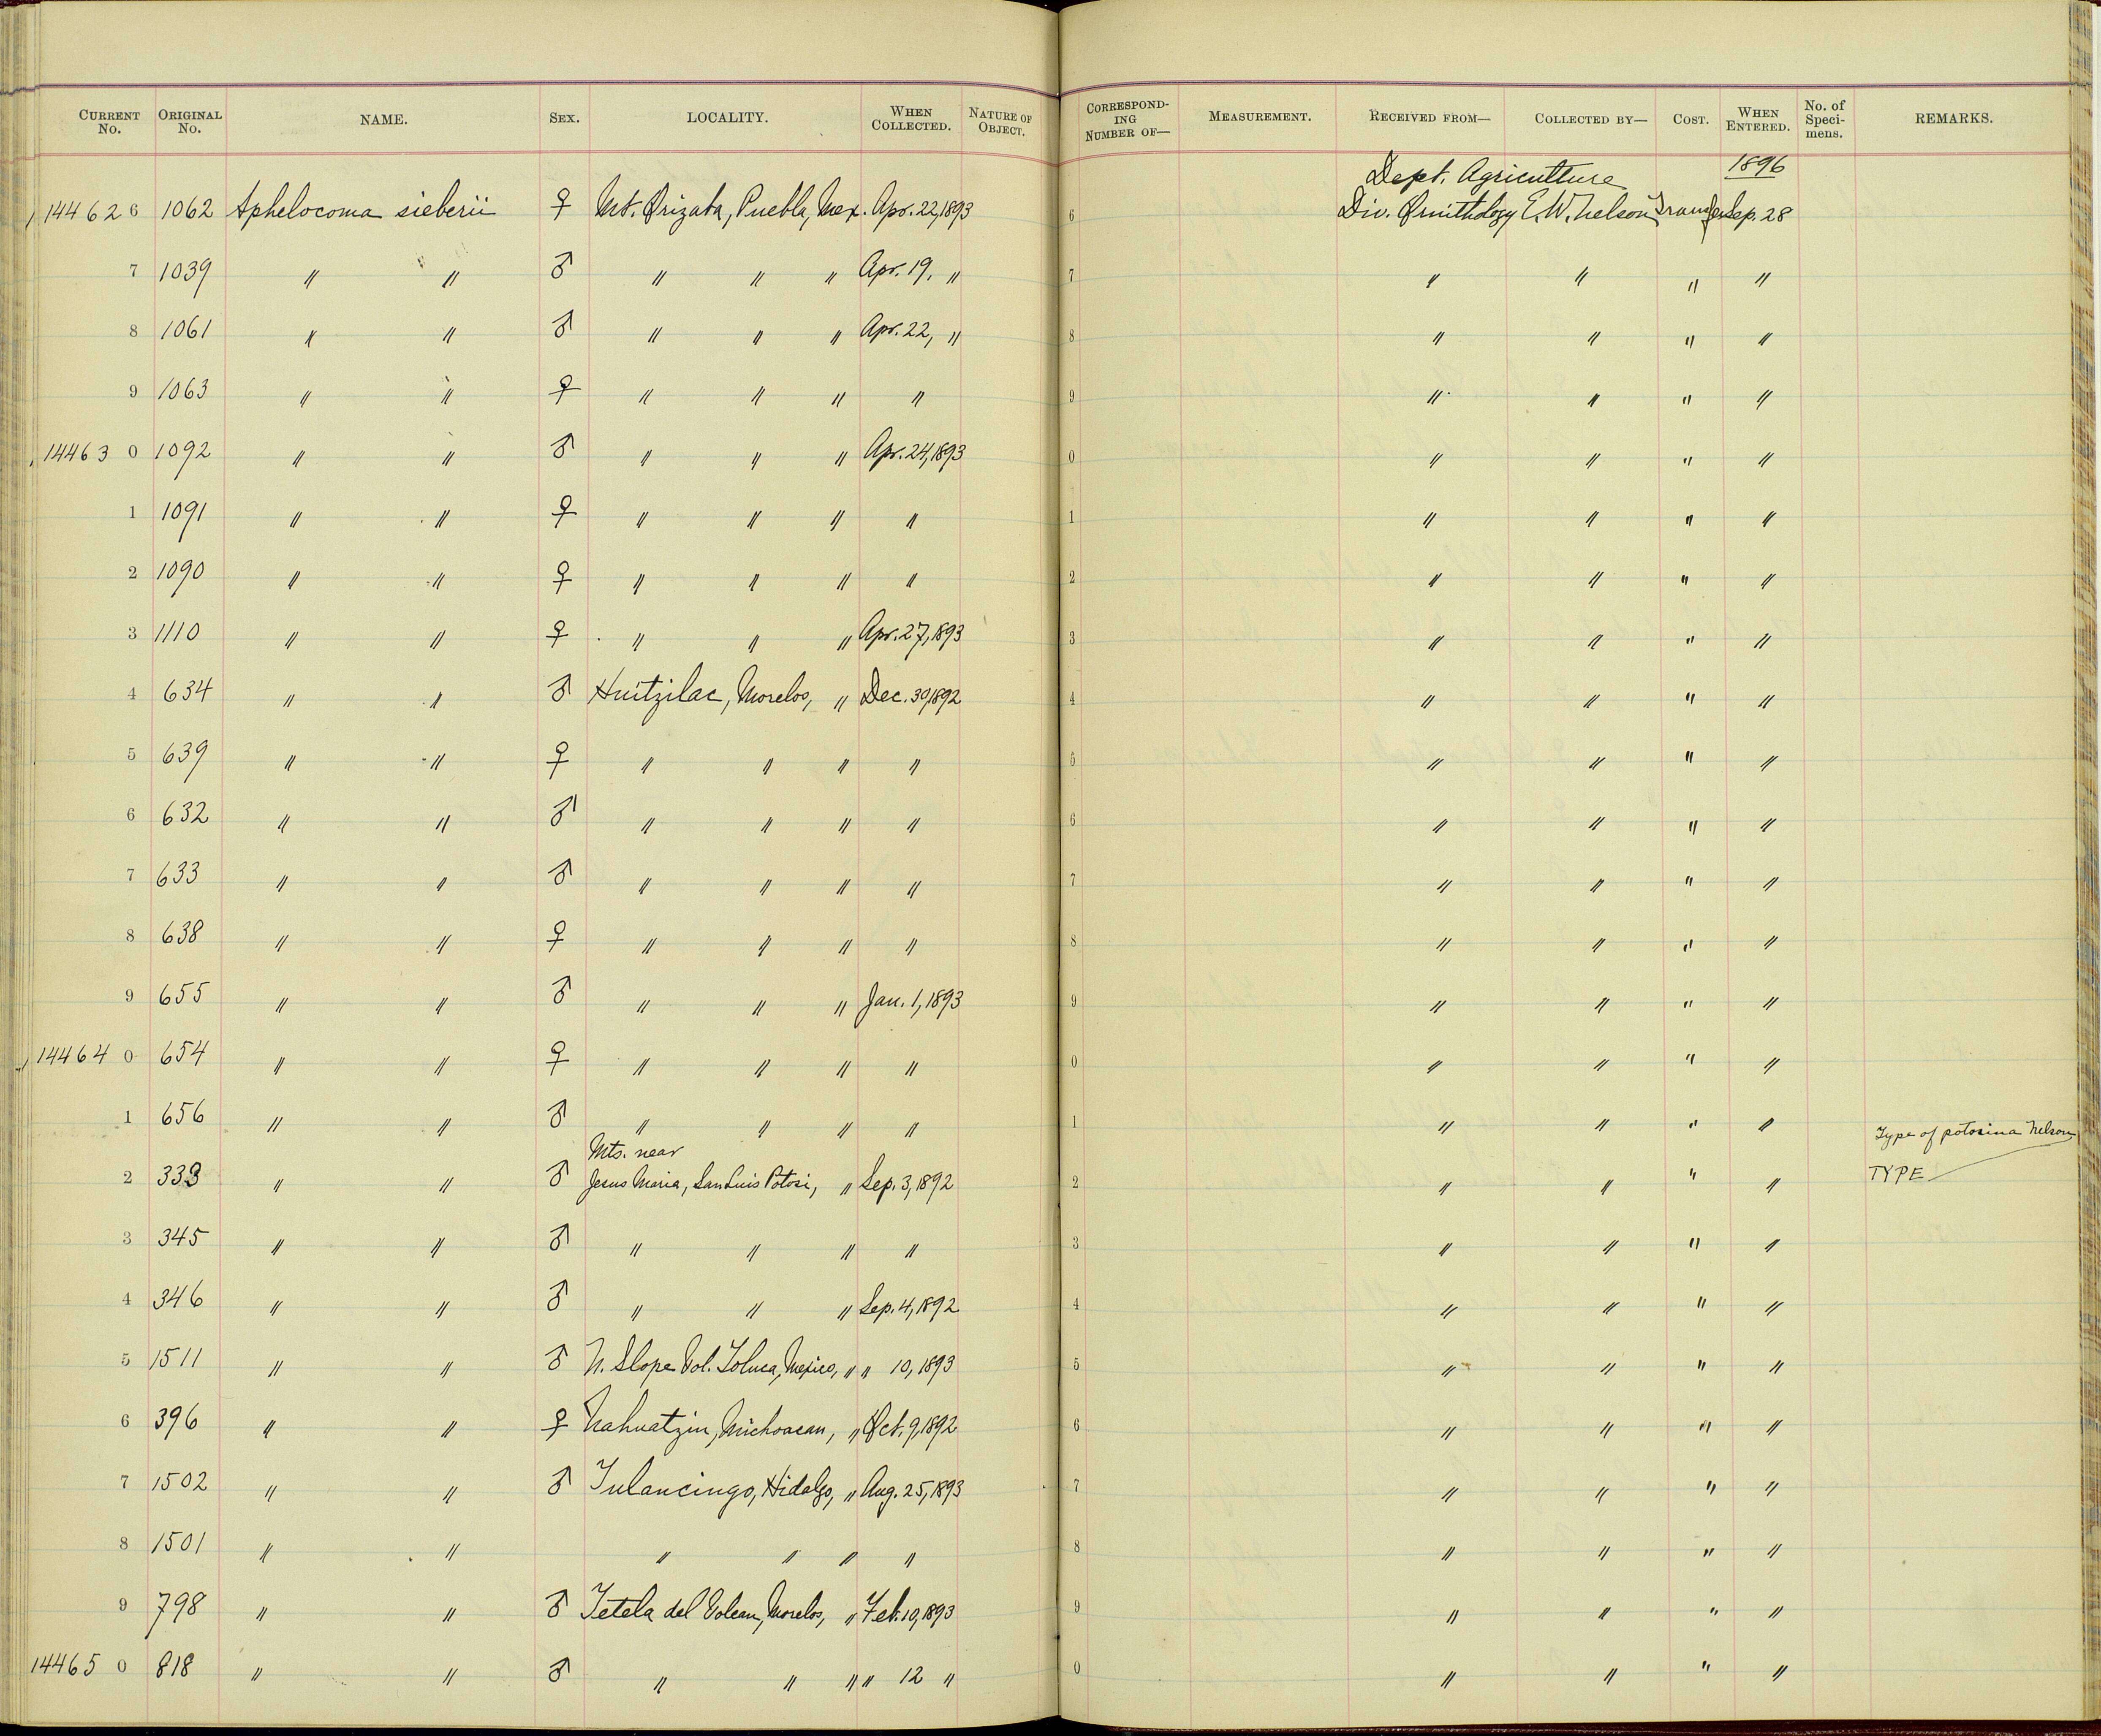 CURRENT No. ORIGINAL No. NAME. SEX. LOCALITY. WHEN COLLECTED. NATURE OF OBJECT. CORRESPONDING NUMBER OF— MEASUREMENT. RECEIVED FROM— COLLECTED BY— COST. WHEN ENTERED. No. of Specimens. REMARKS.
Dept. Agriculture 1896
144626 1062 Aphelocoma sieberii ♀ Mt. Orizaba, Puebla, Mex. Apr. 22, 1893 6 Div. Ornithology E. W. Nelson Transfer Sep. 28
7 1039 " " ♂ " " " Apr. 19, " 7 " " " "
8 1061 " " ♂ " " " Apr. 22, " 8 " " " "
9 1063 " " ♀ " " " " 9 " " " "
144630 1092 " " ♂ " " " Apr. 24, 1893 0 " " " "
1 1091 " " ♀ " " " " 1 " " " "
2 1090 " " ♀ " " " " 2 " " " "
3 1110 " " ♀ " " " Apr. 27, 1893 3 " " " "
4 634 " " ♂ Huitzilac, Morelos, " Dec. 30, 1892 4 " " " "
5 639 " " ♀ " " " " 5 " " " "
6 632 " " ♂ " " " " 6 " " " "
7 633 " " ♂ " " " " 7 " " " "
8 638 " " ♀ " " " " 8 " " " "
9 655 " " ♂ " " " Jan. 1, 1893 9 " " " "
144640 654 " " ♀ " " " " 0 " " " "
1 656 " " ♂ " " " " 1 " " " " Type of potosina Nelson
Mts. near
2 333 " " ♂ Jesus Maria, San Luis Potosi, " Sep. 3, 1892 2 " " " " TYPE
3 345 " " ♂ " " " " 3 " " " "
4 346 " " ♂ " " " Sep. 4, 1892 4 " " " "
5 1511 " " ♂ N. Slope Vol. Toluca, Mexico, " " 10, 1893 5 " " " "
6 396 " " ♀ Nahuatzin, Michoacan, " Oct. 9, 1892 6 " " " "
7 1502 " " ♂ Tulancingo, Hidalgo, " Aug. 25, 1893 7 " " " "
8 1501 " " " " " " 8 " " " "
9 798 " " ♂ Tetela del Volcan, Morelos, " Feb. 10, 1893 9 " " " "
144650 818 " " ♂ " " " " 12 " 0 " " " "